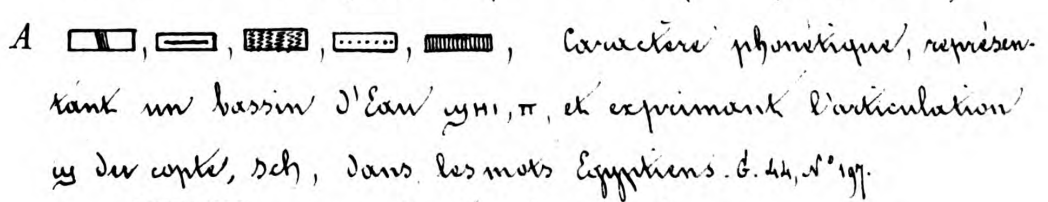 A 𓈙, 𓈙, 𓈙, 𓈙, 𓈙, Caractère phonétique, représen-
tant un bassin d'Eau ϣⲏⲓ, ⲡ, et exprimant l'articulation
ϣ du copte, sch, dans les mots Egyptiens. G. 44, N° 197.